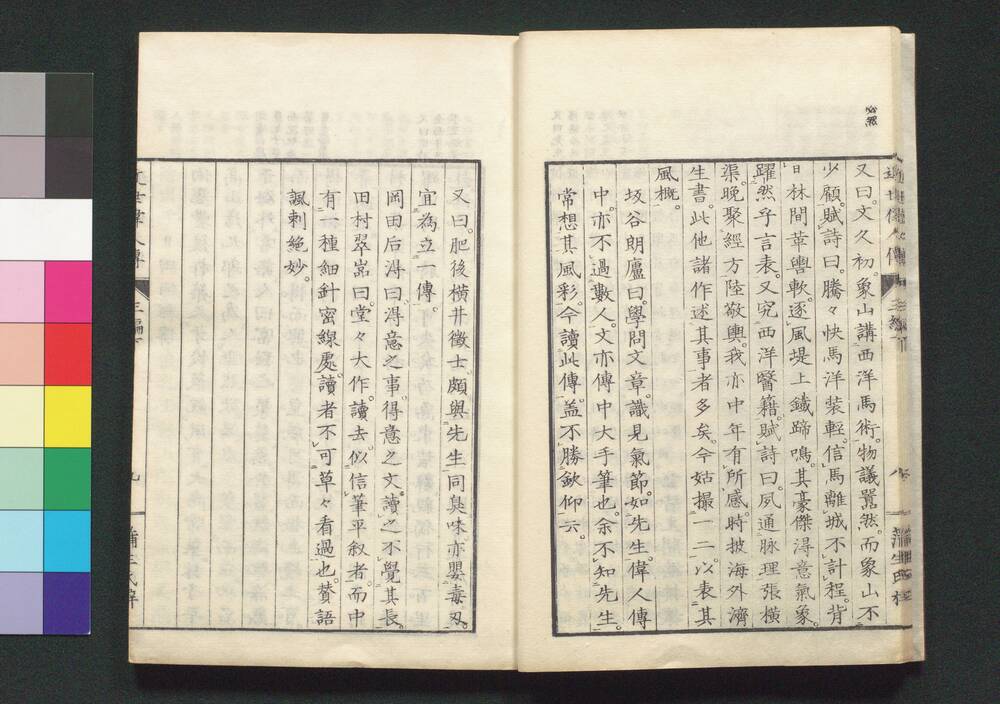 又曰。文久初。象山講西洋馬術。物議囂然。而象山不
少顧。賦詩曰。騰々快馬洋装輕。信馬離城不計程。背
日林間革轡軟。逐風堤上鐵蹄鳴。其豪傑得意氣象。
躍然乎言表。又究西洋醫籍。賦詩曰。夙通脉理張横
渠。晩聚經方陸敬輿。我亦中年有所感。時披海外濟
生書。此他諸作。述其事者多矣。今姑撮一二。以表其
風概。
坂谷朗廬曰。學問文章。識見氣節。如先生。偉人傳
中。亦不過數人。文亦傳中大手筆也。余不知先生。
常想其風彩。今讀此傳。盖不勝欽仰云。
又曰。肥後横井徴士。頗與先生同臭味。亦嬰毒刃。
宜為立一傳。
岡田后得曰。得意之事。得意之文。讀之不覺其長。
田村翠嵓曰。堂々大作。讀去。似信筆平叙者。而中
有一種細針密線處。讀者不可草々看過也。賛語
諷刺絶妙。
九